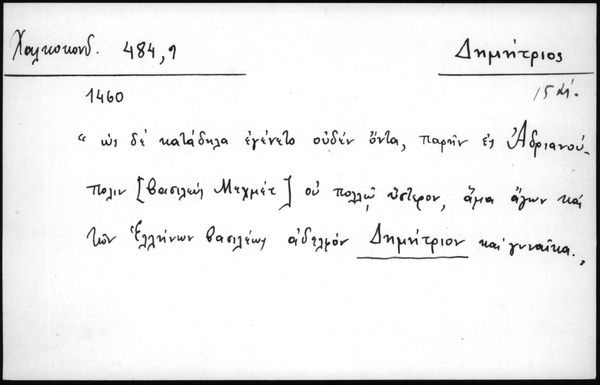 Χαλκοκονδ. 484,9 Δημήτριος
1460 15 αἰ.
“ ὡς δέ κατάδηλα ἐγένετο οὐδέν ὄντα, παρῆν ἐς Ἀδριανού-
πολιν [βασιλεύς Μεχμέτ] οὐ πολλῷ ὕστερον, ἅμα ἄγων καί
τῶν Ἑλλήνων βασιλέως ἀδελφόν Δημήτριον καί γυναῖκα.„